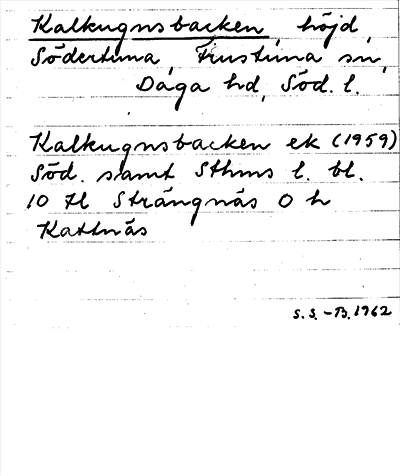 Kalkugnsbacken, höjd,
Södertuna, Frustuna sn,
Daga hd, Söd. l.
Kalkugnsbacken ek (1959)
Söd. samt Sthms l. bl.
10 H Strängnäs O h
Kattnäs
S. S. - B. 1962